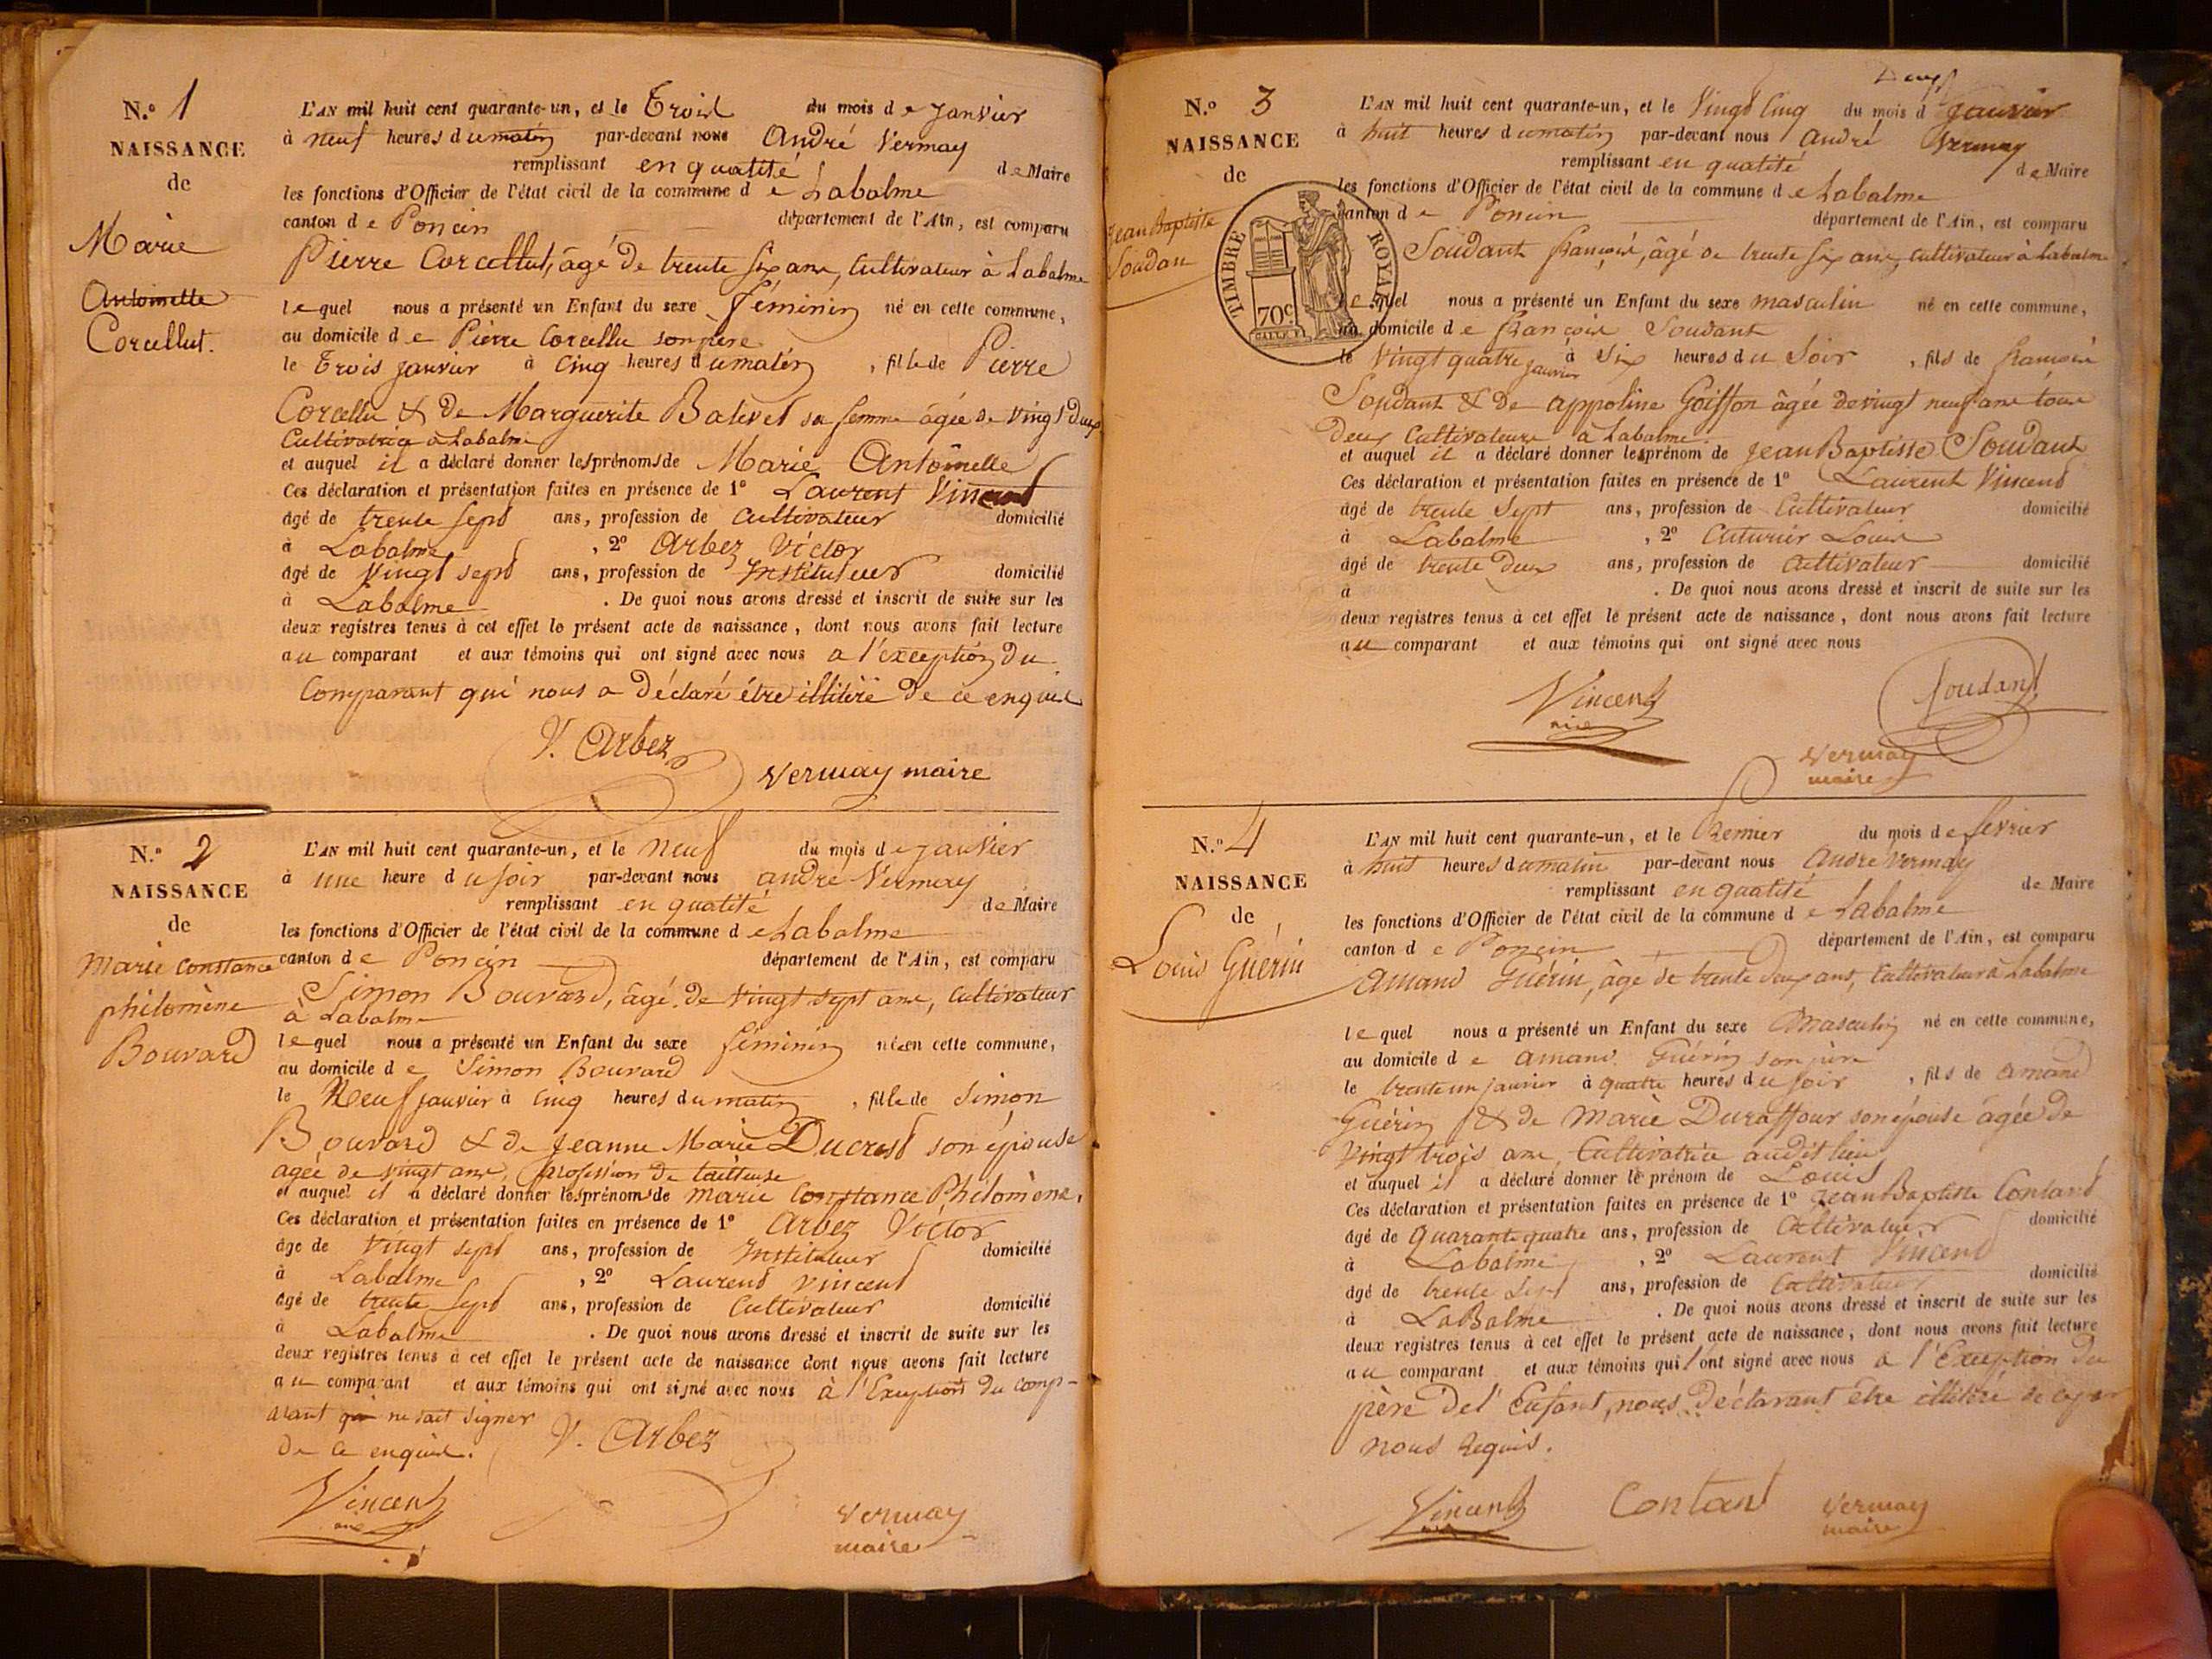 N.º 1
NAISSANCE
de
Marie
Antoinette
Corcellut.
L'AN mil huit cent quarante-un, et le Trois du mois de janvier
à neuf heures du matin par-devant nous André Vermay
remplissant en qualité de Maire
les fonctions d'Officier de l'état civil de la commune de Labalme
canton de Poncin département de l'Ain, est comparu
Pierre Corcellut, âgé de trente six ans, Cultivateur à Labalme
lequel nous a présenté un Enfant du sexe féminin né en cette commune,
au domicile de Pierre Corcellu son père
le Trois janvier à Cinq heures du matin, fille de Pierre
Corcellu & de Marguerite Balivet sa femme âgée de vingt deux
Cultivatrice à Labalme
et auquel il a déclaré donner les prénoms de Marie Antoinelle
Ces déclaration et présentation faites en présence de 1º Laurent Vincent
âgé de trente sept ans, profession de Cultivateur domicilié
à Labalme, 2º Arbez Victor
âgé de Vingt sept ans, profession de Instituteur domicilié
à Labalme. De quoi nous avons dressé et inscrit de suite sur les
deux registres tenus à cet effet le présent acte de naissance, dont nous avons fait lecture
au comparant et aux témoins qui ont signé avec nous a l'exception du
Comparant qui nous a déclaré être illitéré de ce enquis
V. Arbez
Vermay maire
N.º 2
NAISSANCE
de
Marie Constance
philomène
Bouvard
L'AN mil huit cent quarante-un, et le Neuf du mois de janvier
à une heure du soir par-devant nous andré Vermay
remplissant en qualité de Maire
les fonctions d'Officier de l'état civil de la commune de Labalme
canton de Poncin département de l'Ain, est comparu
Simon Bouvard, âgé de Vingt sept ans, Cultivateur
à Labalme
lequel nous a présenté un Enfant du sexe féminin née en cette commune,
au domicile de Simon Bouvard
le Neuf janvier à Cinq heures du matin, fille de Simon
Bouvard & de Jeanne Marie Ducrest son épouse
agée de vingt ans, profession de tailleuse
et auquel il a déclaré donner les prénoms de Marie Constance Philomène,
Ces déclaration et présentation faites en présence de 1º Arbez Victor
âge de Vingt sept ans, profession de Instituteur domicilié
à Labalme, 2º Laurent Vincent
âgé de trente sept ans, profession de Cultivateur domicilié
à Labalme. De quoi nous avons dressé et inscrit de suite sur les
deux registres tenus à cet effet le présent acte de naissance dont nous avons fait lecture
au comparant et aux témoins qui ont signé avec nous à l'Exception du comp-
arant qui ne sait signer
de ce enquis. V. Arbez
Vincent
Vermay
maire
N.º 3
NAISSANCE
de
Jean Baptiste
Soudan
TIMBRE ROYAL
70c.
L'AN mil huit cent quarante-un, et le Vingt Cinq du mois d janvier
à huit heures du matin par-devant nous André Vermay
remplissant en qualité de Maire
les fonctions d'Officier de l'état civil de la commune de Labalme
canton de Poncin département de l'Ain, est comparu
Soudant françois, âgé de trente six ans, cultivateur à Labalme
lequel nous a présenté un Enfant du sexe masculin né en cette commune,
au domicile de françois Soudant
le Vingt quatre janvier à Six heures du Soir, fils de françois
Soudant & de appoline Goiffon âgée de vingt neuf ans tous
deux Cultivateurs à Labalme
et auquel il a déclaré donner les prénom de Jean Baptiste Soudant
Ces déclaration et présentation faites en présence de 1º Laurent Vincent
âgé de trente Sept ans, profession de Cultivateur domicilié
à Labalme, 2º Cuturier Louis
âgé de trente deux ans, profession de Cultivateur domicilié
à . De quoi nous avons dressé et inscrit de suite sur les
deux registres tenus à cet effet le présent acte de naissance, dont nous avons fait lecture
au comparant et aux témoins qui ont signé avec nous
Vincent
Soudant
Vermay
maire
N.º 4
NAISSANCE
de
Louis Guérin
L'AN mil huit cent quarante-un, et le Premier du mois de février
à huit heures du matin par-devant nous André Vermay
remplissant en qualité de Maire
les fonctions d'Officier de l'état civil de la commune de Labalme
canton de Poncin département de l'Ain, est comparu
Amand Guérin, âgé de trente deux ans, Cultivateur à Labalme
lequel nous a présenté un Enfant du sexe Masculin né en cette commune,
au domicile de amand Guérin son père
le trente un janvier à quatre heures du soir, fils de amand
Guérin & de Marie Duraffour son épouse âgée de
Vingt trois ans Cultivatrice audit lieu
et auquel il a déclaré donner le prénom de Louis
Ces déclaration et présentation faites en présence de 1º Jean Baptiste Contant
âgé de Quarante quatre ans, profession de Cultivateur domicilié
à Labalme, 2º Laurent Vincent
âgé de trente Sept ans, profession de Cultivateur domicilié
à LaBalme. De quoi nous avons dressé et inscrit de suite sur les
deux registres tenus à cet effet le présent acte de naissance, dont nous avons fait lecture
au comparant et aux témoins qui ont signé avec nous a l'Exception du
père de l'Enfant, nous déclarant être illitéré de ce par
nous Requis.
Vincent Contant Vermay
maire